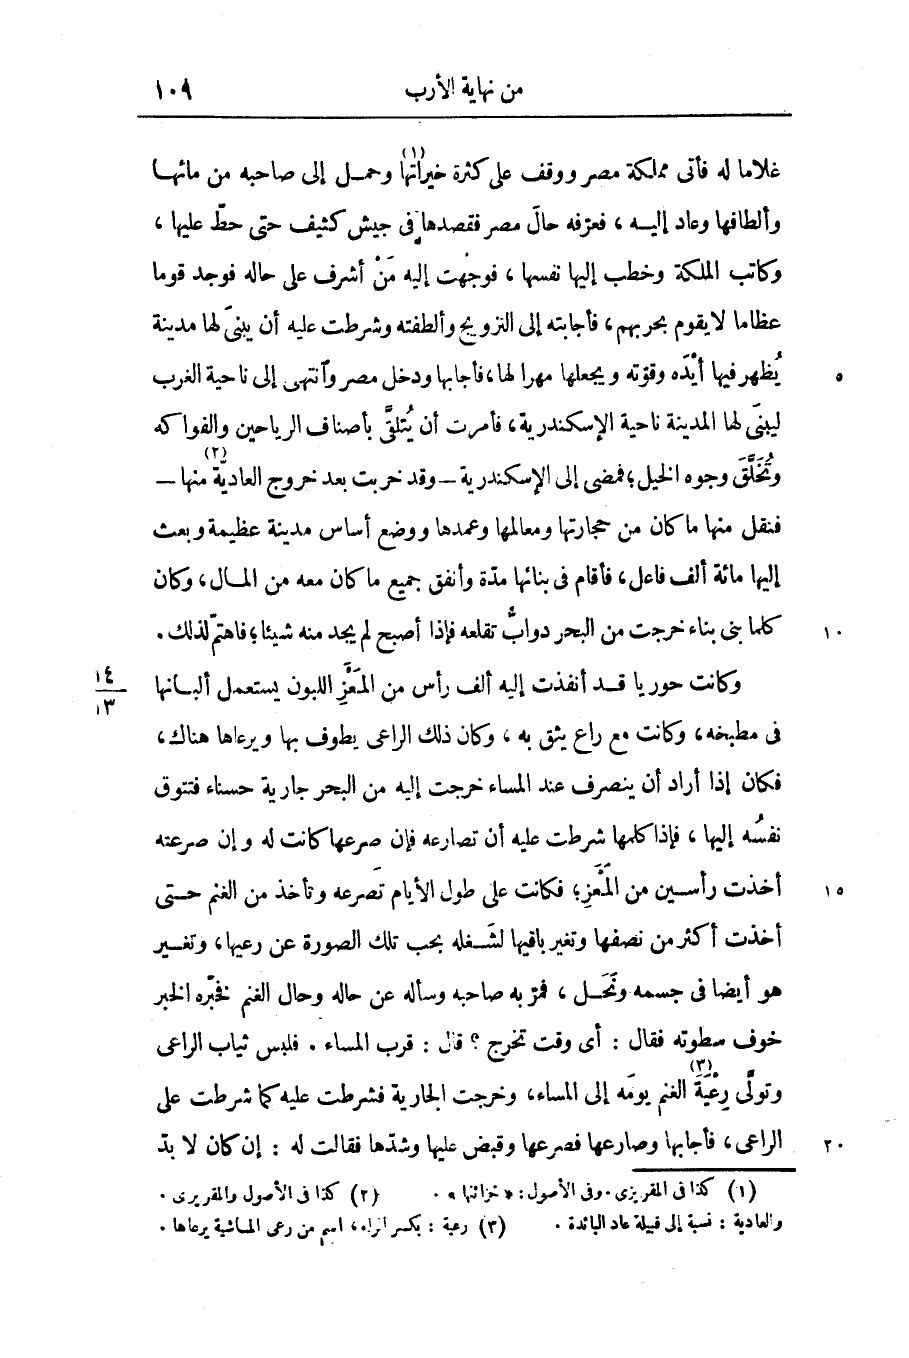 من نهاية الأرب ١٠٩
غلاما له فأتى مملكة مصر ووقف على كثرة خيراتها (١) وحمل إلى صاحبه من مائها
وألطافها وعاد إليه ، فعرّفه حالَ مصر فقصدها فى جيش كثيف حتى حطّ عليها ،
وكاتب الملكة وخطب إليها نفسها ، فوجّهت إليه مَنْ أشرف على حاله فوجد قوما
عظاما لا يقوم بحربهم ، فأجابته إلى التزويج وألطفته وشرطت عليه أن يبنىَ لها مدينة
يُظهر فيها أيْدَه وقوّته ويجعلها مهرا لها ، فأجابها ودخل مصر وآنتهى إلى ناحية الغرب ٥
ليبنىَ لها المدينة ناحية الإسكندرية ، فأمرت أن يُتلقَّى بأصناف الرياحين والفواكه
وتُخَلَّقَ وجوه الخيل ؛ فمضى إلى الإسكندرية – وقد خربت بعد خروج العاديّة (٢) منها –
فنقل منها ما كان من حجارتها ومعالمها وعمدها ووضع أساس مدينة عظيمة وبعث
إليها مائة ألف فاعل ، فأقام فى بنائها مدّة وأنفق جميع ما كان معه من المال ، وكان
كلما بنى بناء خرجت من البحر دوابُّ تقلعه فإذا أصبح لم يجد منه شيئا ؛ فاهتمّ لذلك . ١٠
وكانت حوريا قد أنفذت إليه ألف رأس من المَعَزِ اللبون يستعمل ألبانها ١٤/١٣
فى مطبخه ، وكانت مع راع يثق به ، وكان ذلك الراعى يطوف بها ويرعاها هناك ،
فكان إذا أراد أن ينصرف عند المساء خرجت إليه من البحر جارية حسناء فتتوق
نفسُه إليها ، فإذا كلمها شرطت عليه أن تصارعه فإن صرعها كانت له وإن صرعته
أخذت رأسين من المَعَزِ ؛ فكانت على طول الأيام تَصرعه وتأخذ من الغنم حتى ١٥
أخذت أكثر من نصفها وتغير باقيها لشَغله بحب تلك الصورة عن رعيها ، وتغير
هو أيضا فى جسمه ونَحَل ، فمرّ به صاحبه وسأله عن حاله وحال الغنم فخبّره الخبر
خوف سطوته فقال : أى وقت تخرج ؟ قال : قرب المساء . فلبس ثياب الراعى
وتولَّى رِعْيَةَ (٣) الغنم يومَه إلى المساء ، وخرجت الجارية فشرطت عليه كما شرطت على
الراعى ، فأجابها وصارعها فصرعها وقبض عليها وشدّها فقالت له : إن كان لا بدّ ٢٠
(١) كذا فى المقريزى . وفى الأصول : « خزائنها » . (٢) كذا فى الأصول والمقريزى .
والعادية : نسبة إلى قبيلة عاد البائدة . (٣) رعية : بكسر الراء ، اسم من رعى الماشية يرعاها .